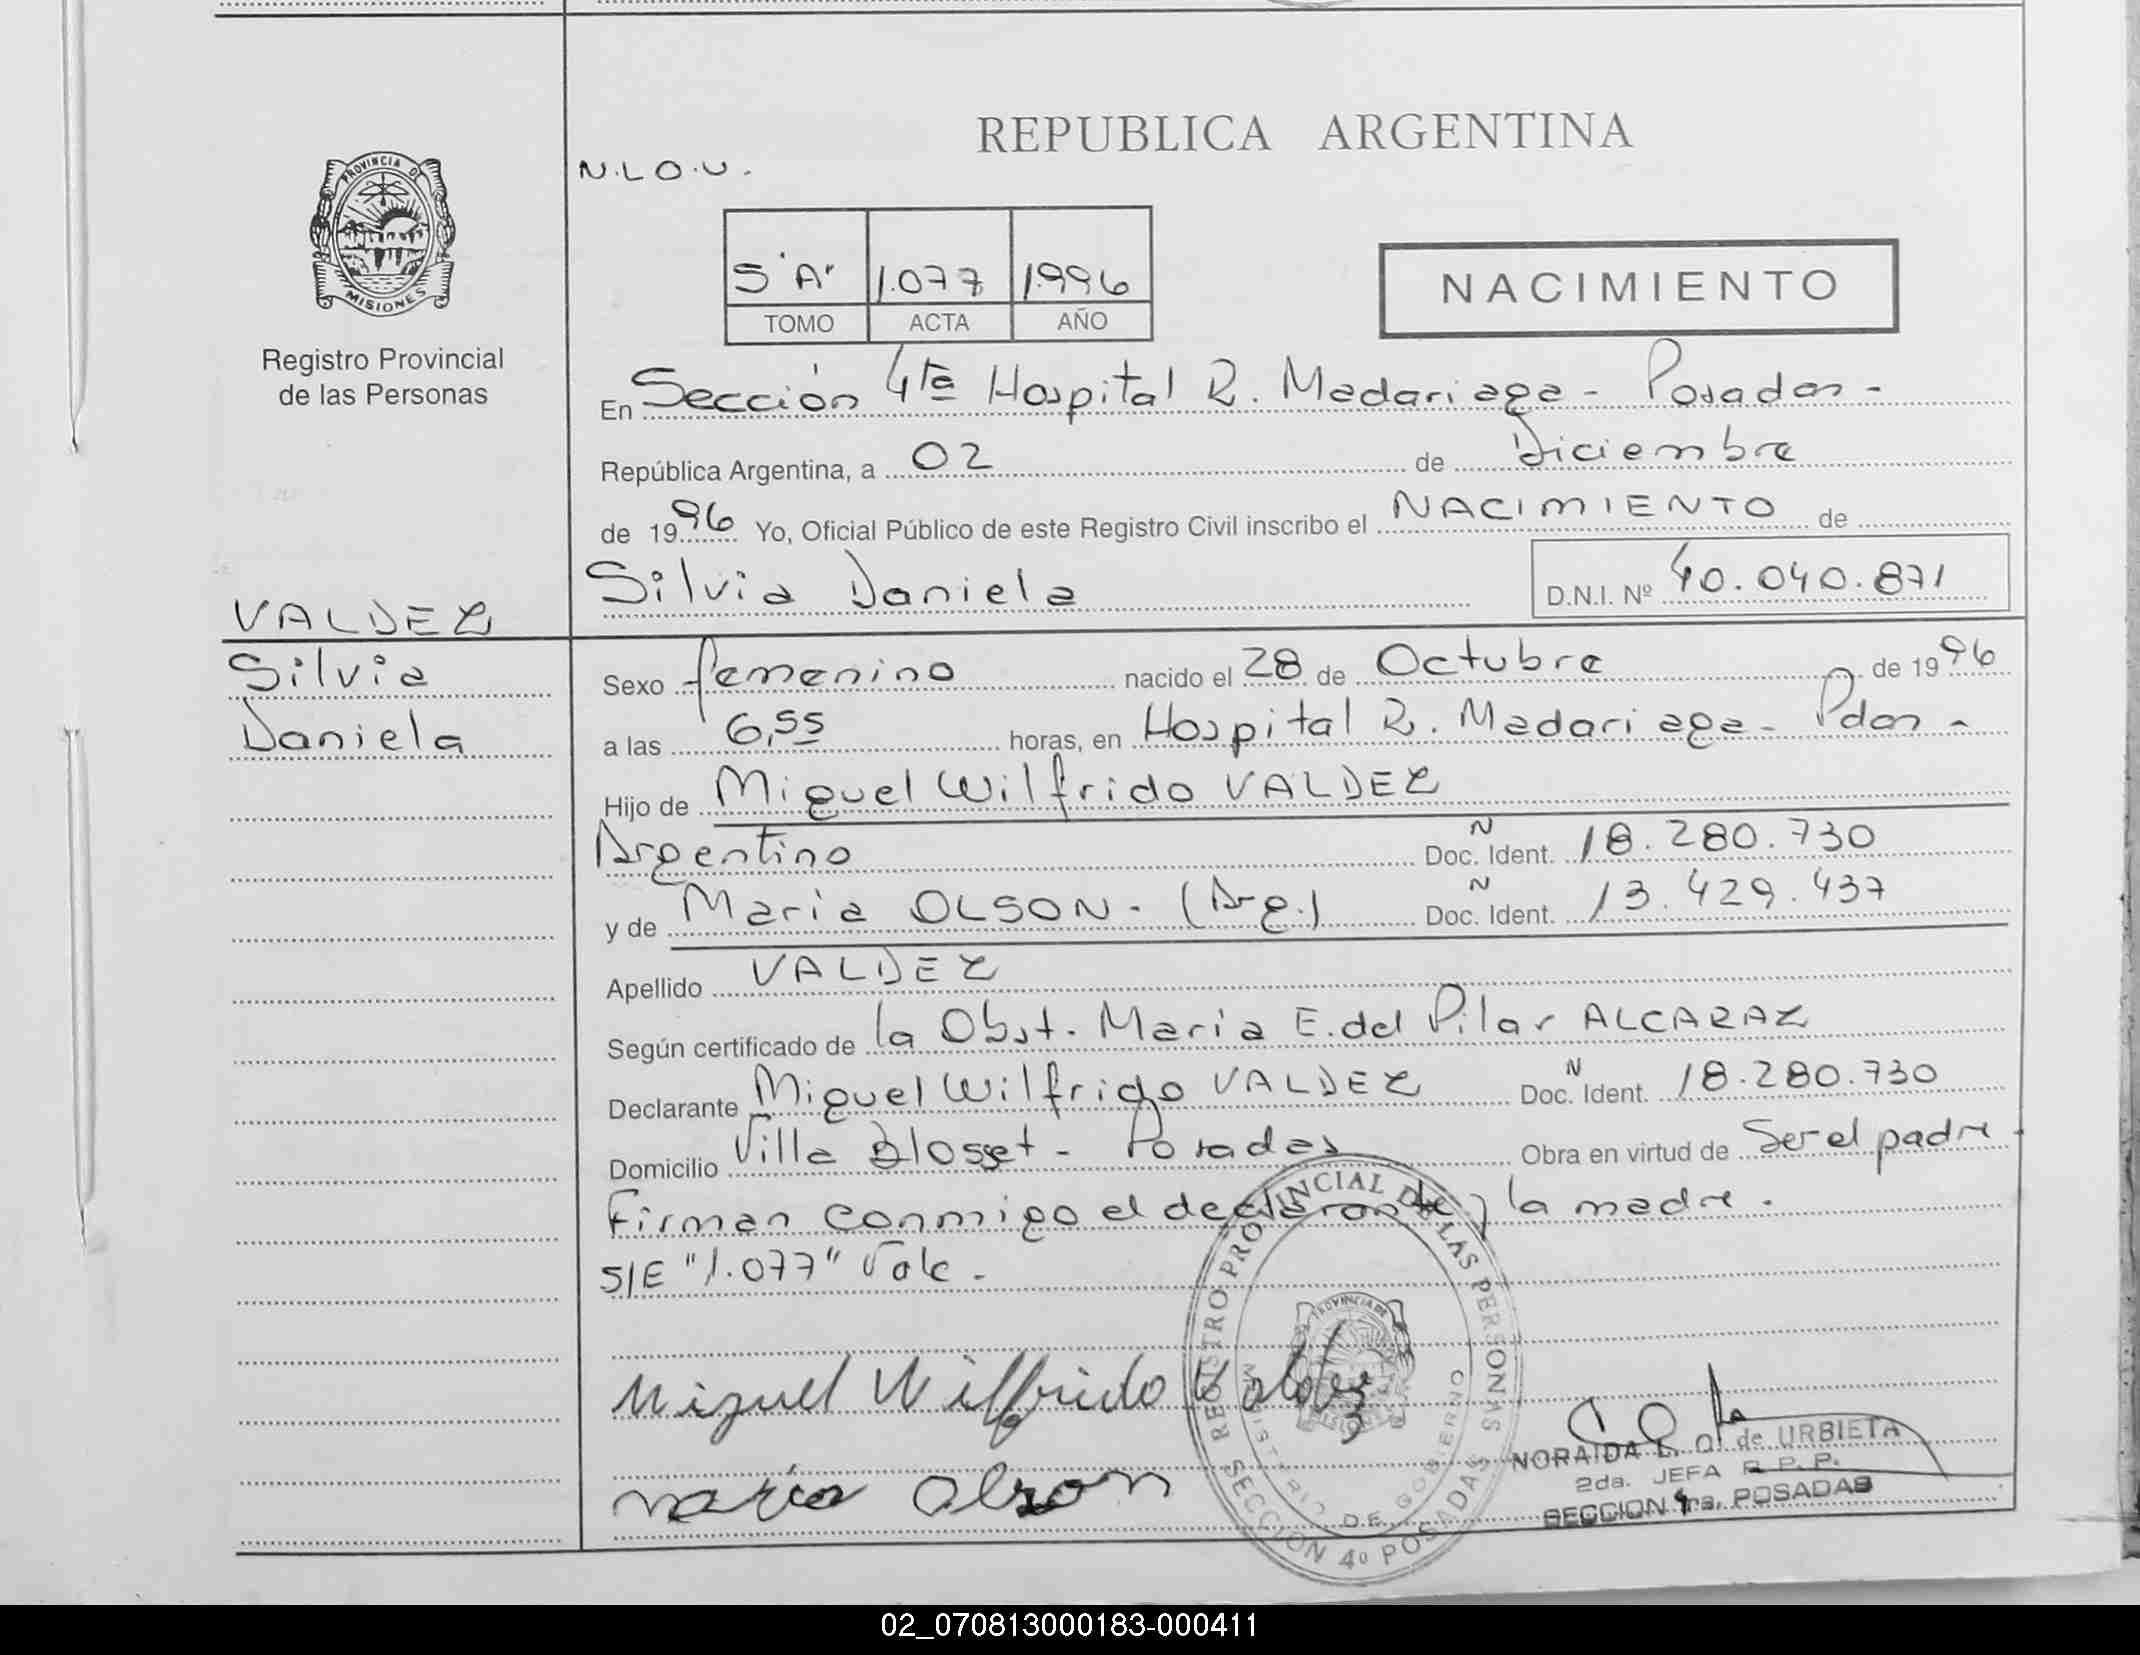 REPUBLICA ARGENTINA
N.L.O.U.
PROVINCIA DE
MISIONES
Registro Provincial
de las Personas
5 "A" 1.077 1996
TOMO ACTA AÑO
NACIMIENTO
En Sección 4ta Hospital R. Madariaga - Posadas -
República Argentina, a 02 de Diciembre
de 1996 Yo, Oficial Público de este Registro Civil inscribo el NACIMIENTO de
Silvia Daniela D.N.I. Nº 40.040.871
VALDEZ
Silvia
Daniela
Sexo femenino nacido el 28 de Octubre de 1996
a las 6,55 horas, en Hospital R. Madariaga - Pdas -
Hijo de Miguel Wilfrido VALDEZ
Argentino Doc. N Ident. 18.280.730
y de Maria OLSON - (Arg.) Doc. N Ident. 13.429.437
Apellido VALDEZ
Según certificado de la Obst. Maria E. del Pilar ALCARAZ
Declarante Miguel Wilfrido VALDEZ Doc. N Ident. 18.280.730
Domicilio Villa Blosset - Posadas Obra en virtud de Ser el padre.
Firman conmigo el declarante y la madre.
S/E "1.077" Vale -
REGISTRO PROVINCIAL DE LAS PERSONAS
PROVINCIA DE
MINISTERIO DE GOBIERNO
SECCION 4º POSADAS
Miguel Wilfrido Valdez
María Olson
NORAIDA L. O. de URBIETA
2da. JEFA R. P. P.
SECCION 4ra. POSADAS
02_070813000183-000411